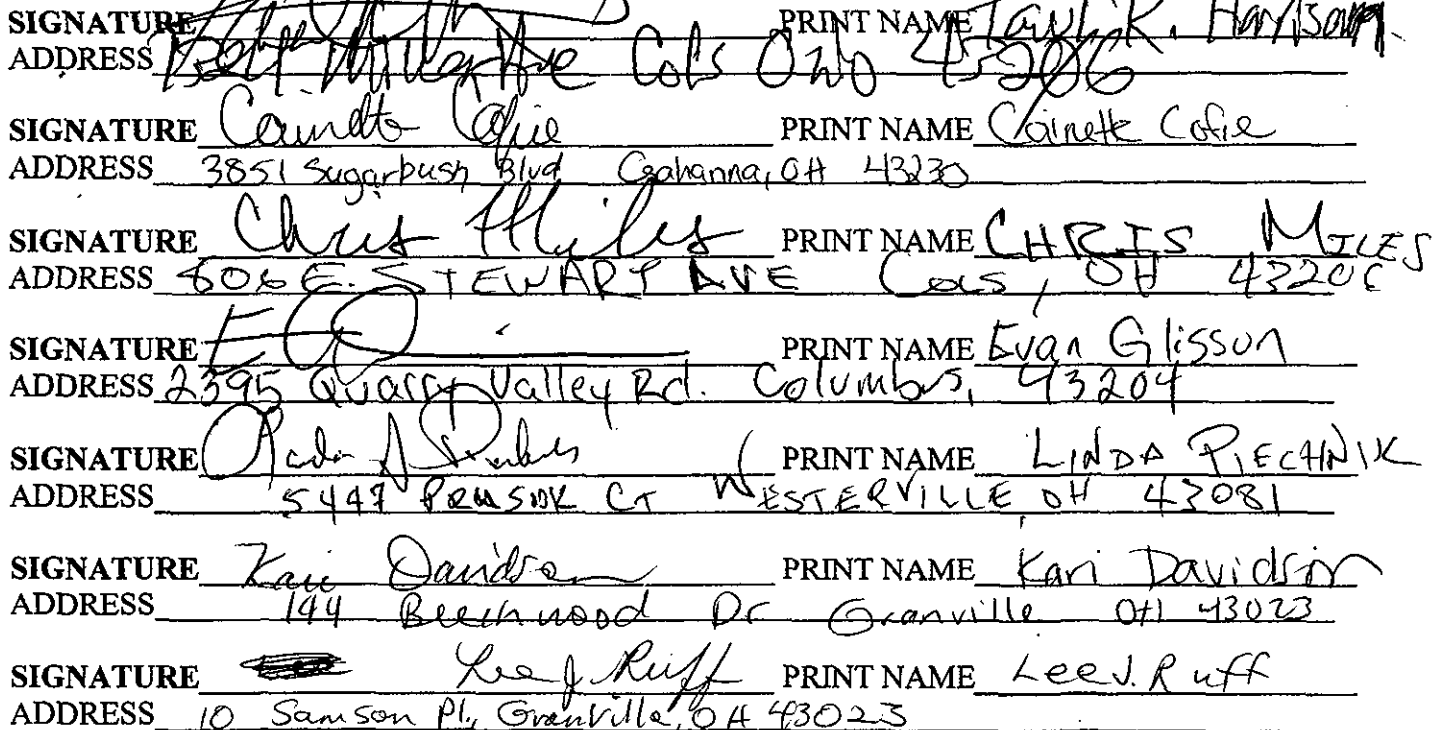 SIGNATURE PRINT NAME K. Harrison
ADDRESS Miller Ave Cols Ohio 43206
SIGNATURE Cainette Cofie PRINT NAME Cainette Cofie
ADDRESS 3851 Sugarbush Blvd Gahanna, OH 43230
SIGNATURE Chris Miles PRINT NAME CHRIS MILES
ADDRESS 606 E. STEWART AVE Cols, OH 43206
SIGNATURE PRINT NAME Evan Glisson
ADDRESS 2395 Quarry Valley Rd. Columbus, 43204
SIGNATURE PRINT NAME LINDA PIECHNIK
ADDRESS 5447 CT WESTERVILLE OH 43081
SIGNATURE Kari Davidson PRINT NAME Kari Davidson
ADDRESS 144 Beechwood Dr Granville OH 43023
SIGNATURE Lee J. Ruff PRINT NAME Lee J. Ruff
ADDRESS 10 Samson Pl, Granville, OH 43023